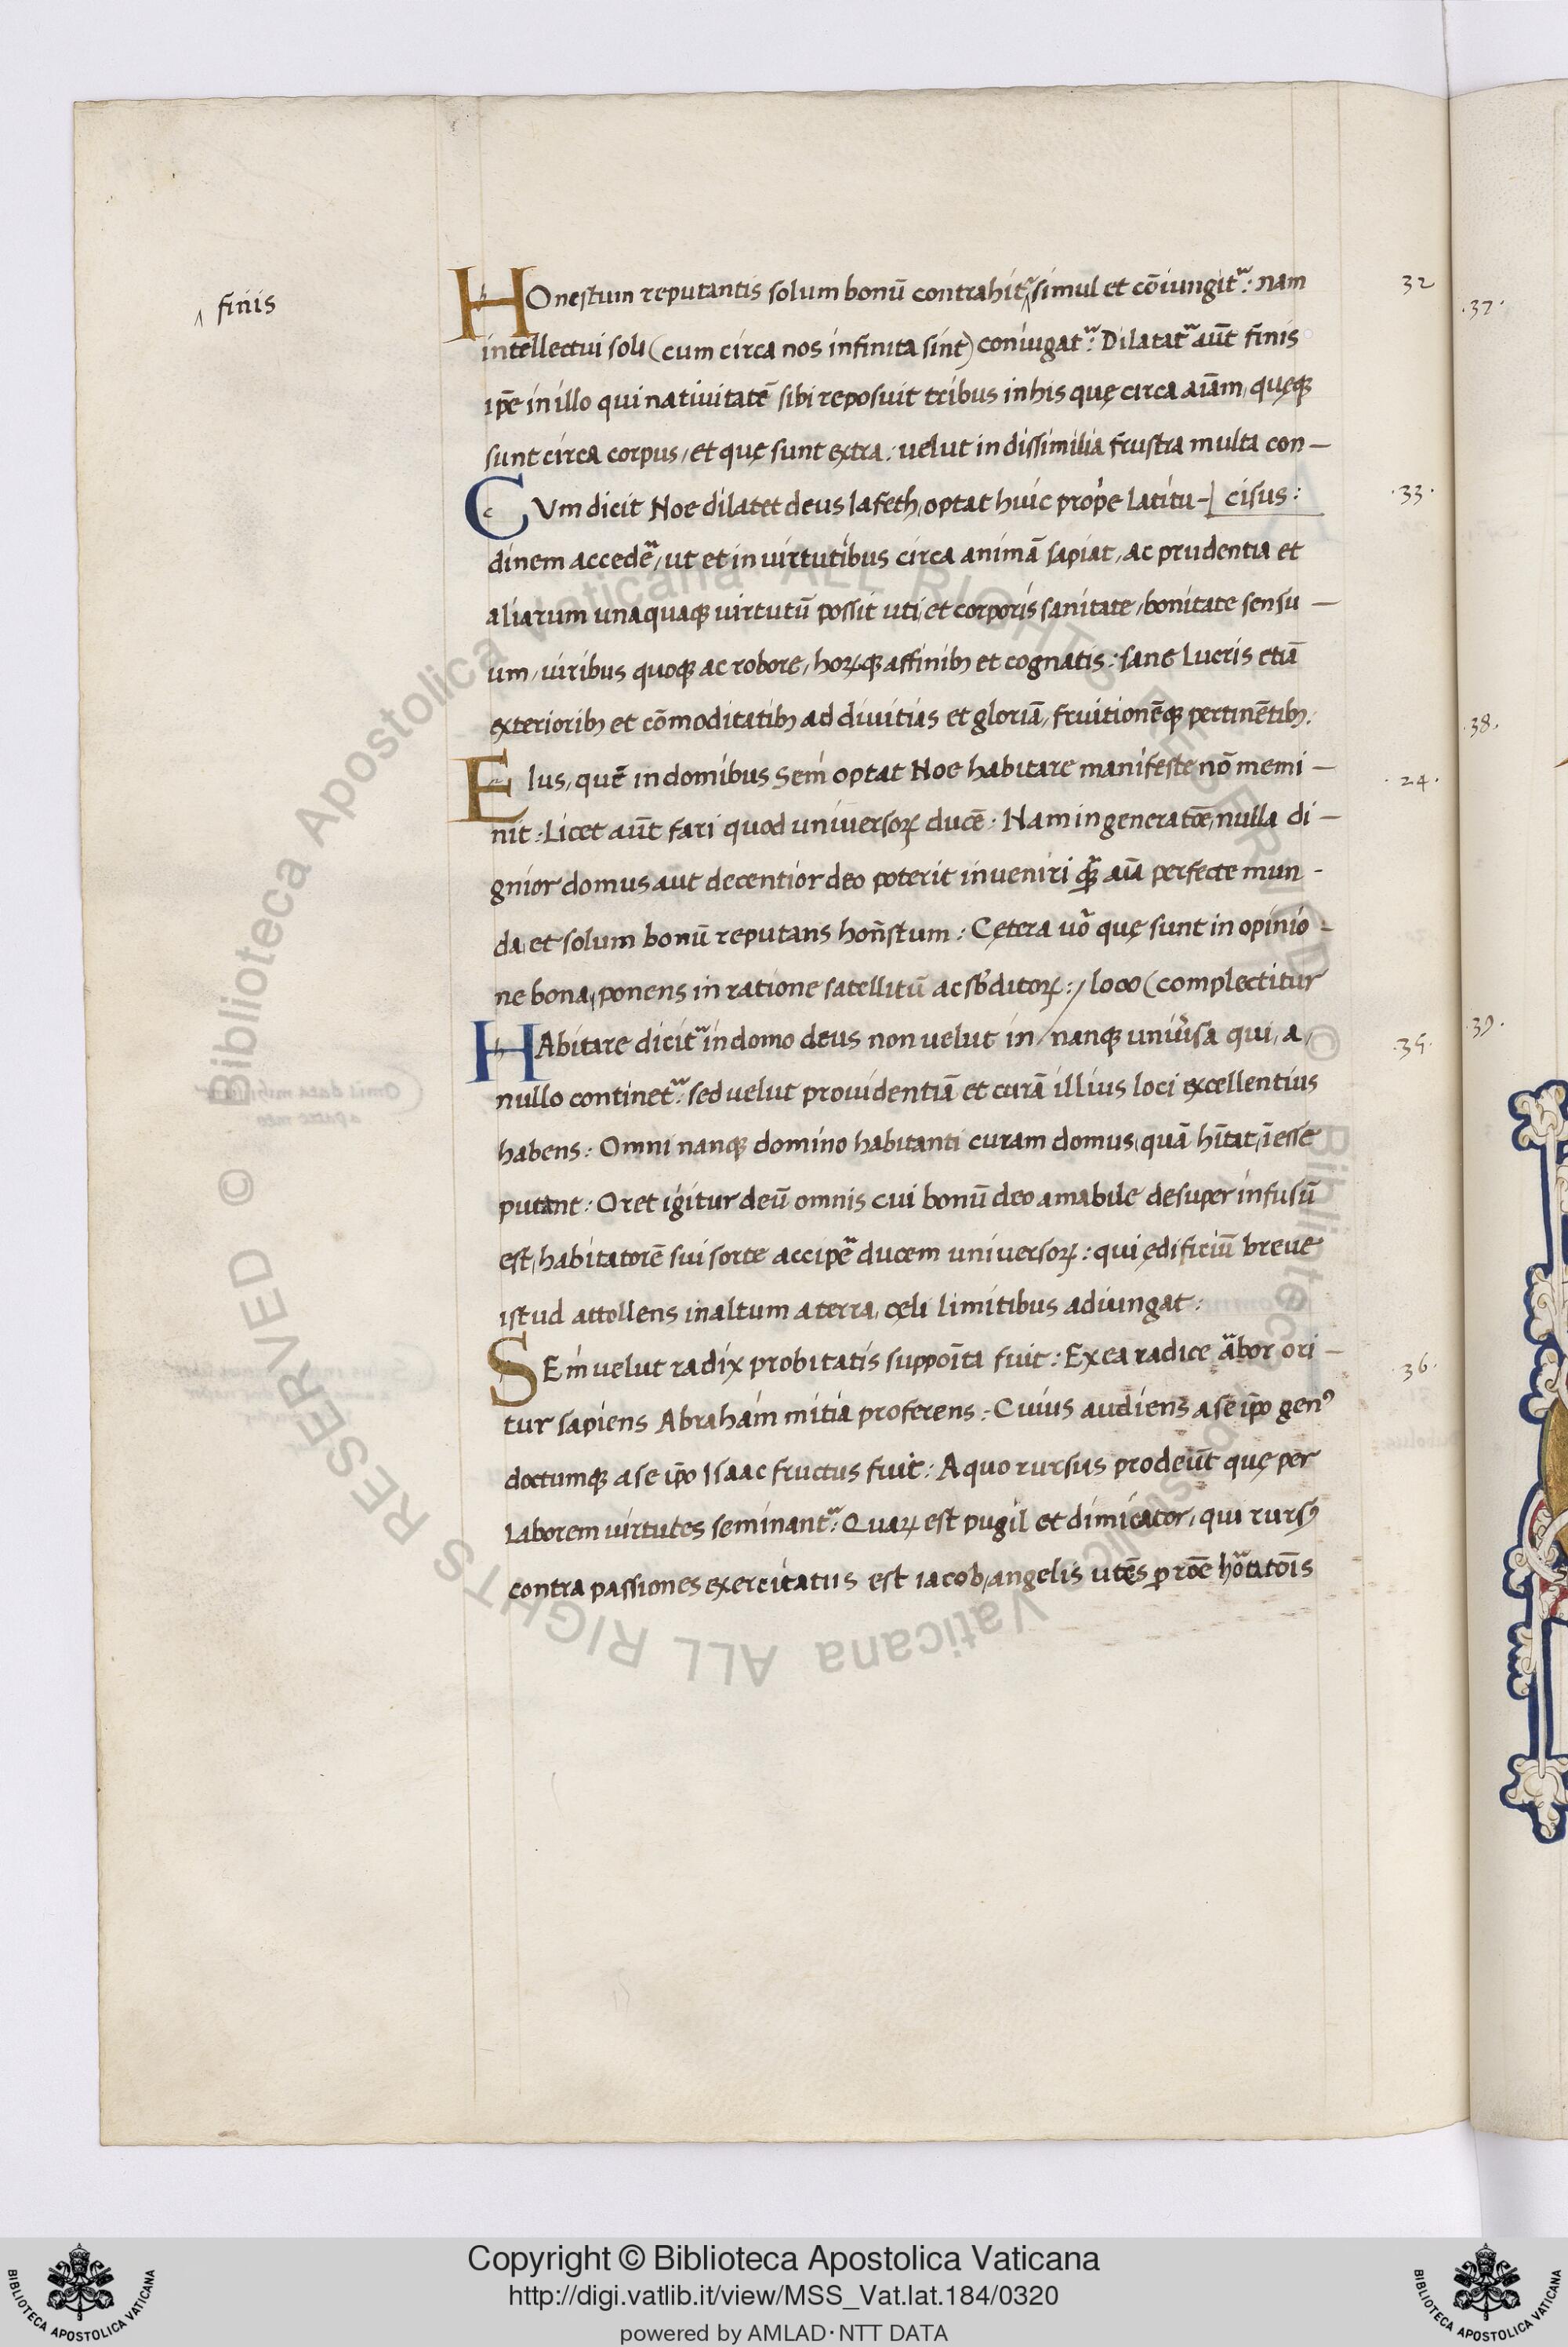 finis
HOnestum reputantis solum bonū contrahit᷑ ‸ simul et cōiungit᷑: nam
intellectui soli (cum circa nos infinita sint) coniugat᷑: Dilatat᷑ aūt finis
ip̄e in illo qui natiuitatē sibi reposuit tribus in his quę circa aīam, quęqꝫ
sunt circa corpus, et quę sunt extra: uelut in dissimilia frustra multa con-
cisus:
CVm dicit Noe dilatet deus Iafeth, optat huic prope latitu-
dinem accedē, ut et in uirtutibus circa animā sapiat, ac prudentia et
aliarum unaquaqꝫ uirtutū possit uti, et corporis sanitate, bonitate sensu-
um, uiribus quoqꝫ ac robore, hoꝝqꝫ affinibꝫ et cognatis: sane lucris etiā
exterioribꝫ et cōmoditatibꝫ ad diuitias et gloriā, fruitionēqꝫ pertinētibꝫ:
Elus, quē in domibus Sem optat Noe habitare manifeste nō memi-
nit: Licet aūt fari quod uniuersoꝝ ducē: Nam in generatōe, nulla di-
gnior domus aut decentior deo poterit inueniri qꝫ aīa perfecte mun-
da, et solum bonū reputans hon̄stum: Cętera uō quę sunt in opinio-
ne bona, ponens in ratione satellitū ac sb̄ditoꝝ: / loco (complectitur
HAbitare dicit᷑ in domo deus non uelut in / nanqꝫ uniūsa qui, a,
nullo continet᷑: sed uelut prouidentiā et curā illius loci excellentius
habens: Omni nanqꝫ domino habitanti curam domus, quā hītat, īesse
putant: Oret igitur deū omnis cui bonū deo amabile desuper infusū
est, habitatorē sui sorte accipē ducem uniuersoꝝ: qui ędificiū breue
istud attollens in altum a terra, cęli limitibus adiungat:
SEm uelut radix probitatis suppoīta fuit: Ex ea radice ābor ori-
tur sapiens Abraham mitia proferens: Cuius audiens a se ip̄o genꝰ
doctumqꝫ a se ip̄o Isaac fructus fuit: A quo rursus prodeūt quę per
laborem uirtutes seminant᷑: Quaꝝ est pugil et dimicator, qui rursꝰ
contra passiones exercitatus est iacob, angelis utēs ꝑ rōe hōtatōis
32
.33.
.24.
.35.
.36.
.37.
.38.
.39.
© Biblioteca Apostolica Vaticana ALL RIGHTS RESERVED
© Biblioteca Apostolica Vaticana ALL RIGHTS RESERVED
Copyright © Biblioteca Apostolica Vaticana
http://digi.vatlib.it/view/MSS_Vat.lat.184/0320
powered by AMLAD·NTT DATA
BIBLIOTECA APOSTOLICA VATICANA
BIBLIOTECA APOSTOLICA VATICANA